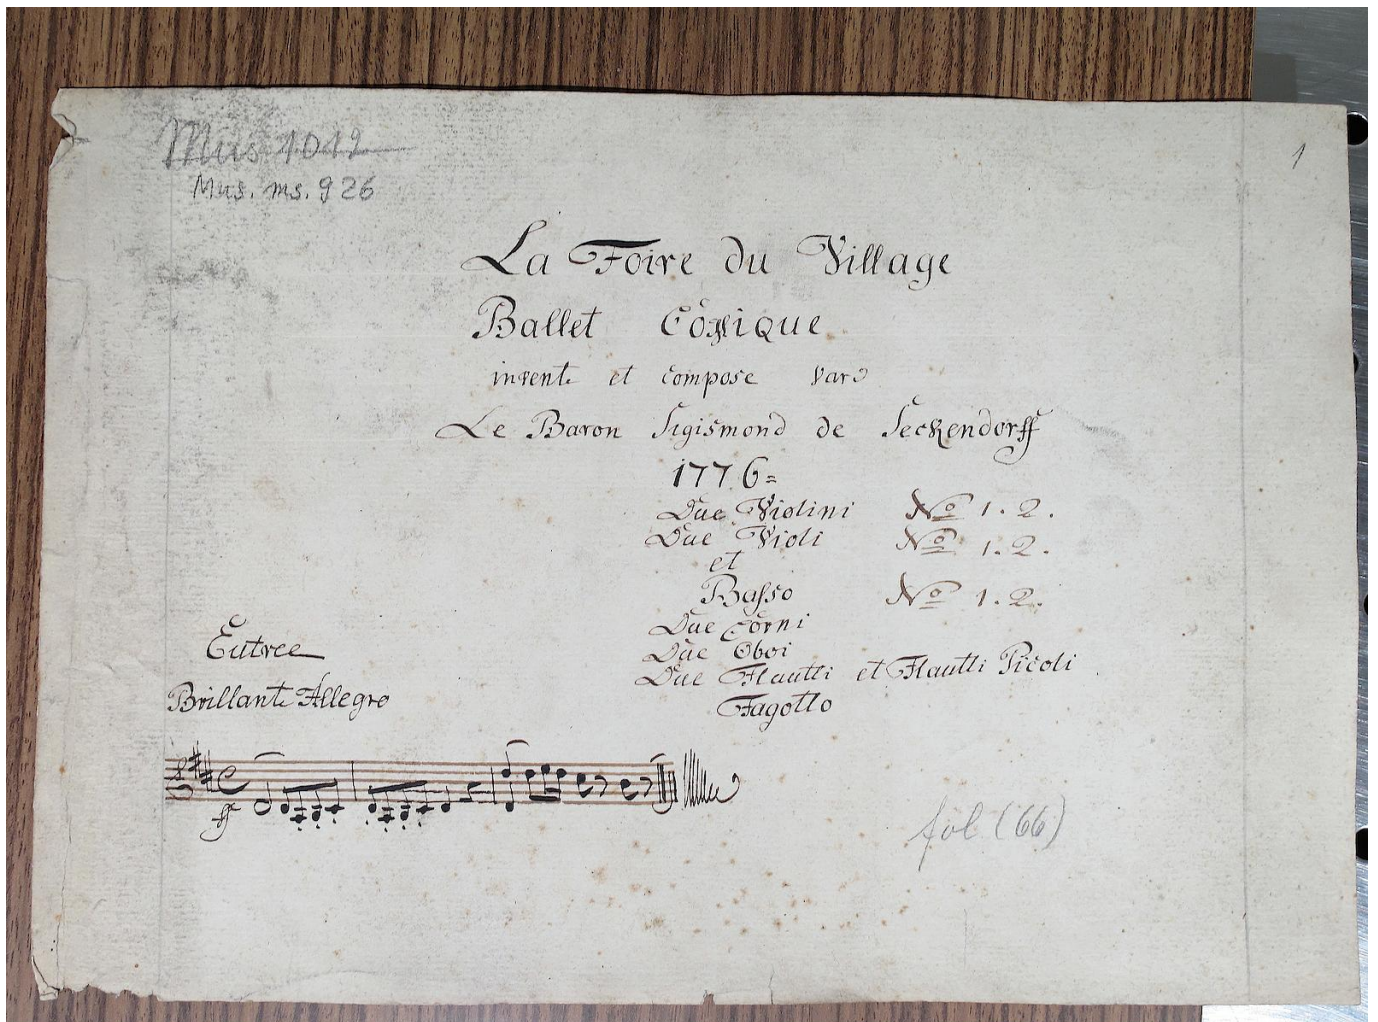 Mus 1012
Mus. ms. 926
1
La Foire du Village
Ballet Comique
invente et compose
Le Baron Sigismond de Seckendorff
1776=
Due Violini No 1. 2.
Due Violi No 1. 2.
et
Basso No 1. 2.
Due Corni
Due Oboi
Due Flautti et Flautti Picoli
Fagotto
Entree
Brillante Allegro
ff
fol (66)